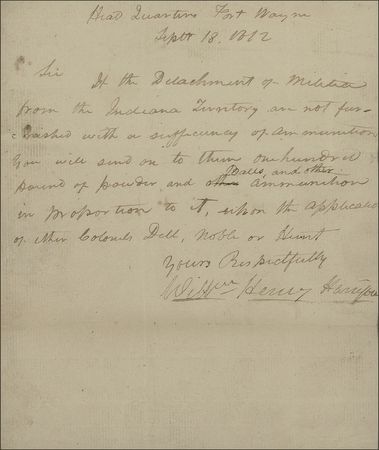 Head Quarters Fort Wayne
Septr 18. 1812
Sir
If the Detachment of Militia
from the Indiana Territory are not fur-
nished with a sufficiency of ammunition
You will send on to them one hundred
Balls, and other
pound of powder and ammunition
in proportion to it, upon the applicatio
of either Colonels Dill, Noble or Hunt
Yours Respectfully
Willm Henry Harrison